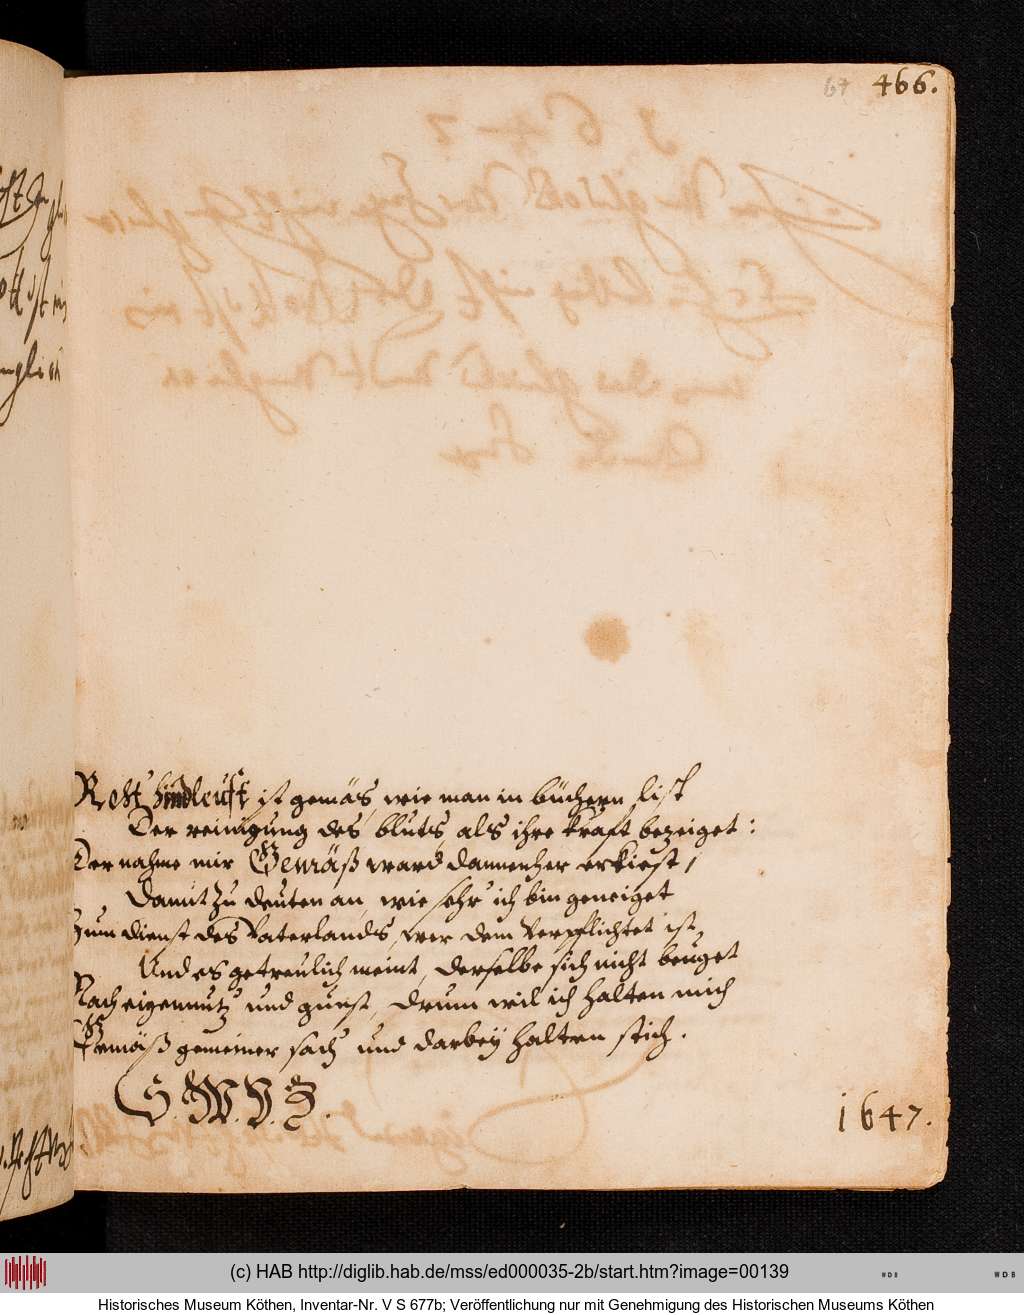 67 466.
Roht bindleuft ist gemäs, wie man in büchern list
Der reinigung des bluts, als ihre kraft bezeiget:
Der nahme mir Gemäß ward dannenher erkiest,
Damit zu deuten an, wie sehr ich bin geneiget
Zum dienst des Vaterlands, wer dem Verpflichtet ist,
Und es getreulich meint, derselbe sich nicht beuget
Nach eigennutz und gunst, drum wil ich halten mich
Gemäß gemeiner sach und darbey halten stich.
1647.
(c) HAB http://diglib.hab.de/mss/ed000035-2b/start.htm?image=00139
Historisches Museum Köthen, Inventar-Nr. V S 677b; Veröffentlichung nur mit Genehmigung des Historischen Museums Köthen